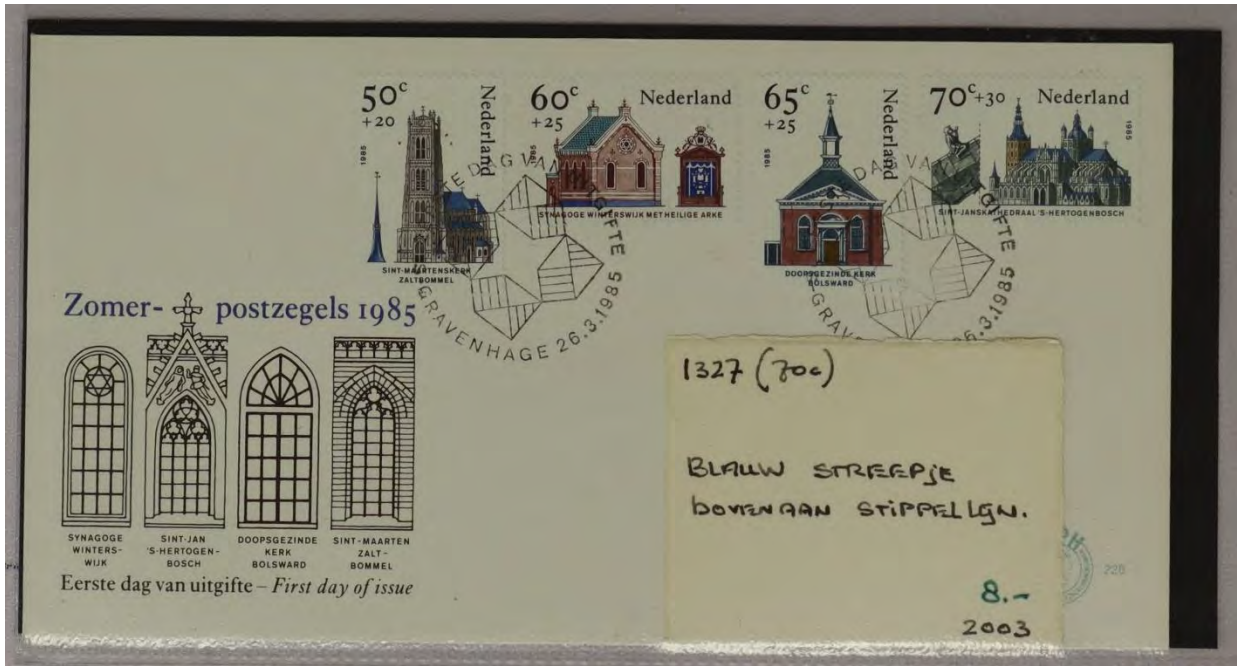 50c
+20
Nederland
1985
SINT-MAARTENSKERK
ZALTBOMMEL
60c
+25
Nederland
1985
SYNAGOGE WINTERSWIJK MET HEILIGE ARKE
65c
+25
Nederland
1985
DOOPSGEZINDE KERK
BOLSWARD
70c+30
Nederland
1985
SINT-JANSKATHEDRAAL 'S-HERTOGENBOSCH
EERSTE DAG VAN UITGIFTE
'S-GRAVENHAGE 26.3.1985
DAG VAN UITGIFTE
GRAVENHAGE 26.3.1985
Zomer- postzegels 1985
SYNAGOGE
WINTERS-
WIJK
SINT-JAN
'S-HERTOGEN-
BOSCH
DOOPSGEZINDE
KERK
BOLSWARD
SINT-MAARTEN
ZALT-
BOMMEL
Eerste dag van uitgifte – First day of issue
1327 (70c)
BLAUW STREEPJE
BOVENAAN STIPPELLIJN.
8.-
2003
PH
228